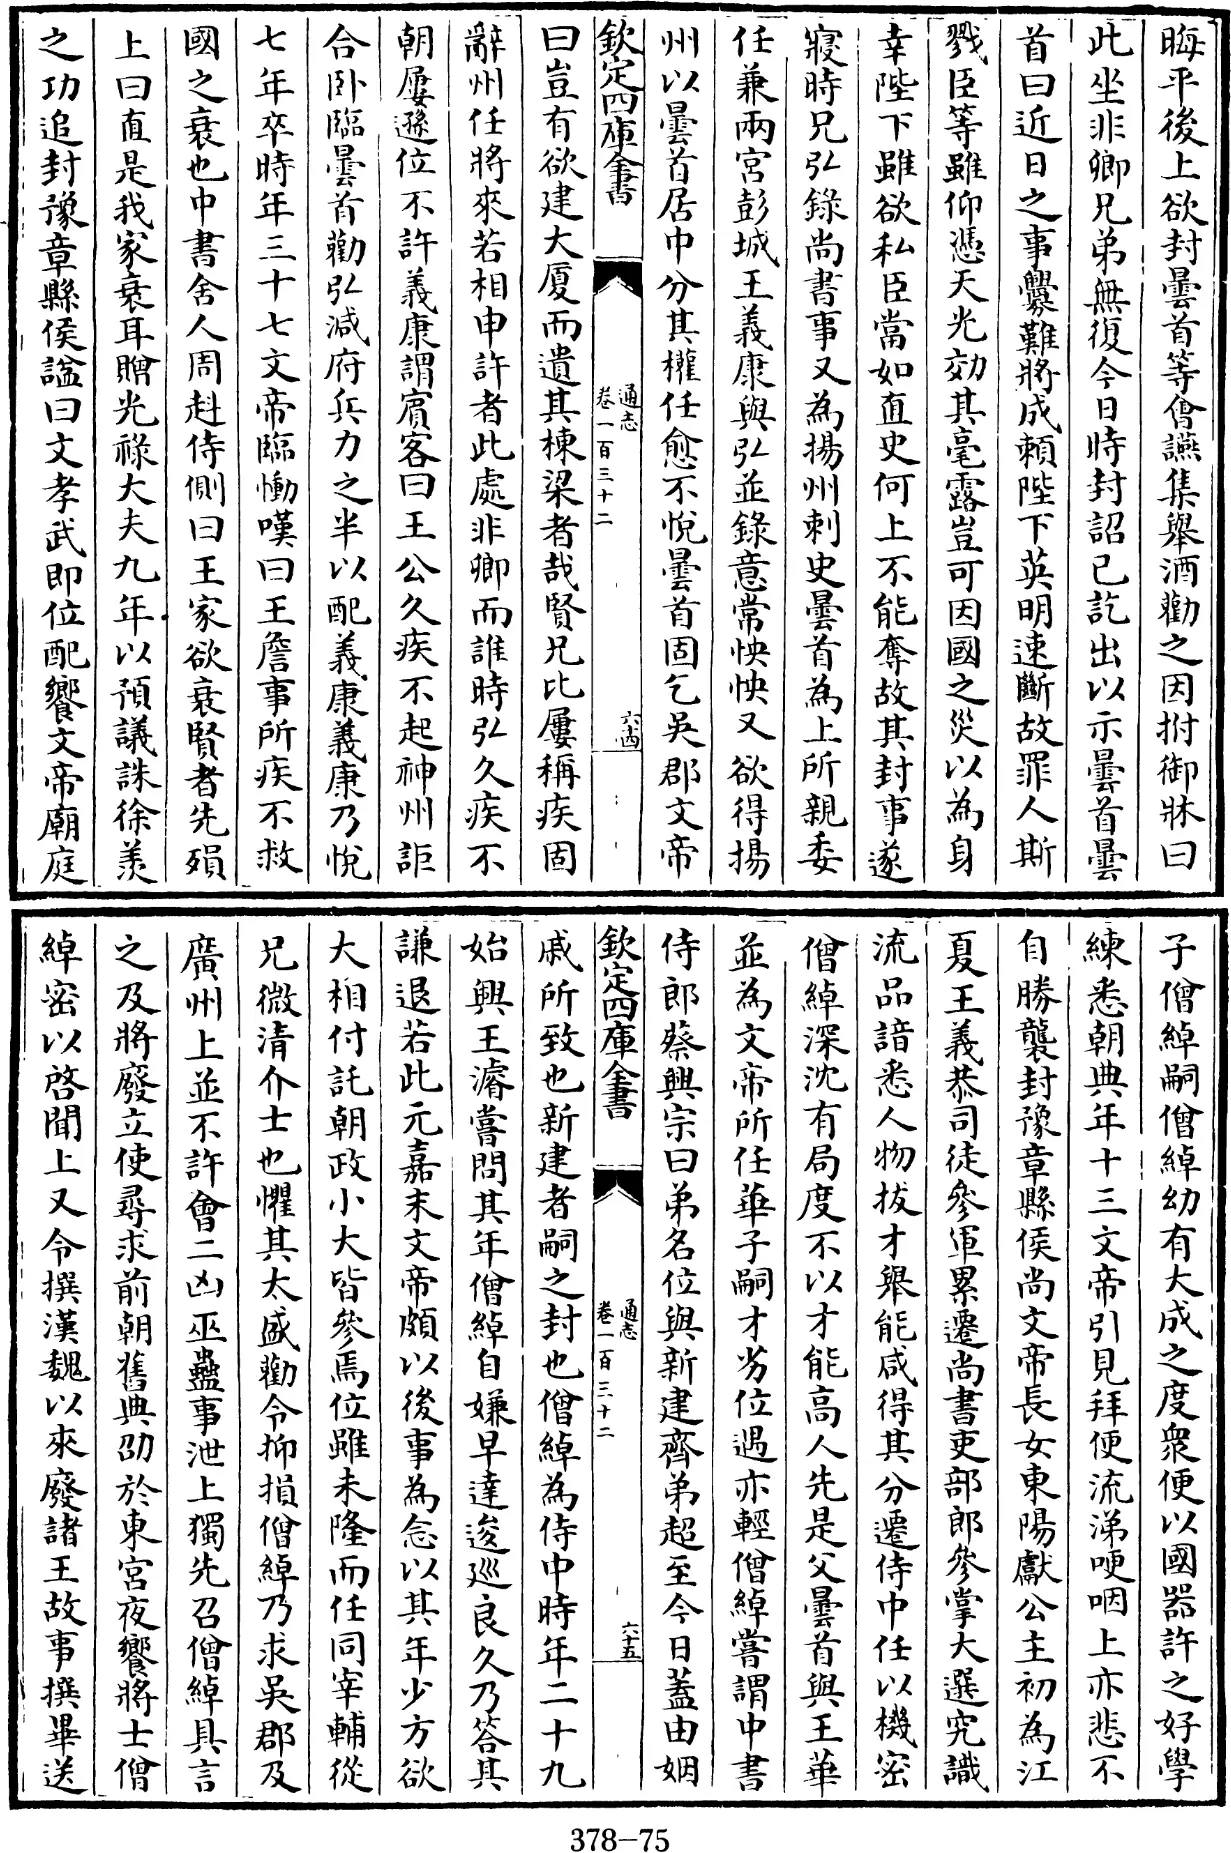 晦平後上欲封曇首等會讌集舉酒勸之因拊御牀曰
此坐非卿兄弟無復今日時封詔已訖出以示曇首曇
首曰近日之事釁難將成賴陛下英明速斷故罪人斯
戮臣等雖仰憑天光効其毫露豈可因國之災以為身
幸陛下雖欲私臣當如直史何上不能奪故其封事遂
寢時兄弘錄尚書事又為揚州刺史曇首為上所親委
任兼兩宮彭城王義康與弘並錄意常怏怏又欲得揚
州以曇首居中分其權任愈不悅曇首固乞吳郡文帝
欽定四庫全書
通志
卷一百三十二
六十四
曰豈有欲建大厦而遺其棟梁者哉賢兄比屢稱疾固
辭州任將來若相申許者此處非卿而誰時弘久疾不
朝屢遜位不許義康謂賓客曰王公久疾不起神州詎
合卧臨曇首勸弘減府兵力之半以配義康義康乃悅
七年卒時年三十七文帝臨慟嘆曰王詹事所疾不救
國之衰也中書舍人周赳侍側曰王家欲衰賢者先殞
上曰直是我家衰耳贈光祿大夫九年以預議誅徐羨
之功追封豫章縣侯謚曰文孝武即位配饗文帝廟庭
子僧綽嗣僧綽幼有大成之度衆便以國器許之好學
練悉朝典年十三文帝引見拜便流涕哽咽上亦悲不
自勝襲封豫章縣侯尚文帝長女東陽獻公主初為江
夏王義恭司徒參軍累遷尚書吏部郎參掌大選究識
流品諳悉人物拔才舉能咸得其分遷侍中任以機密
僧綽深沈有局度不以才能高人先是父曇首與王華
並為文帝所任華子嗣才劣位遇亦輕僧綽嘗謂中書
侍郎蔡興宗曰弟名位與新建齊弟超至今日蓋由姻
欽定四庫全書
通志
卷一百三十二
六十五
戚所致也新建者嗣之封也僧綽為侍中時年二十九
始興王濬嘗問其年僧綽自嫌早達逡巡良久乃答其
謙退若此元嘉末文帝頗以後事為念以其年少方欲
大相付託朝政小大皆參焉位雖未隆而任同宰輔從
兄微清介士也懼其太盛勸令抑損僧綽乃求吳郡及
廣州上並不許會二凶巫蠱事泄上獨先召僧綽具言
之及將廢立使尋求前朝舊典劭於東宮夜饗將士僧
綽密以啓聞上又令撰漢魏以來廢諸王故事撰畢送
378-75